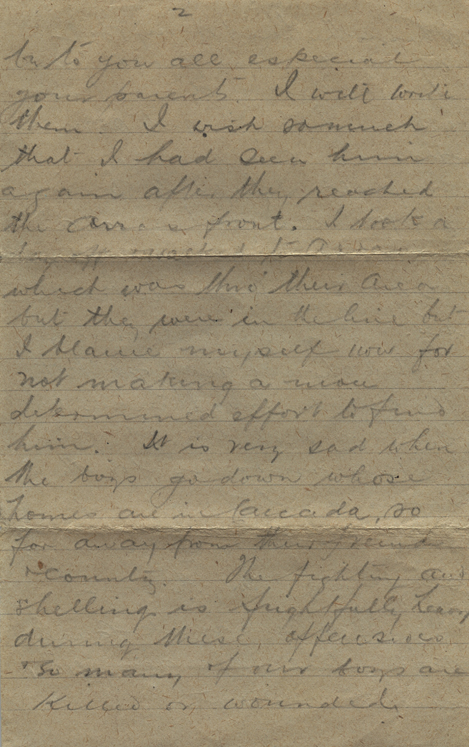 2
to you all especial
your parents. I will write
them. I wish so much
that I had seen him
again after they reached
the front. I took a
which was thro their area
but they were in the line but
I blame myself now for
not making a more
determined effort to find
him. It is very sad when
the boys go down whose
homes are in Canada, so
far away from their friends
& country. The fighting and
shelling is frightfully heavy
during these offensives
So many of our boys are
killed or wounded